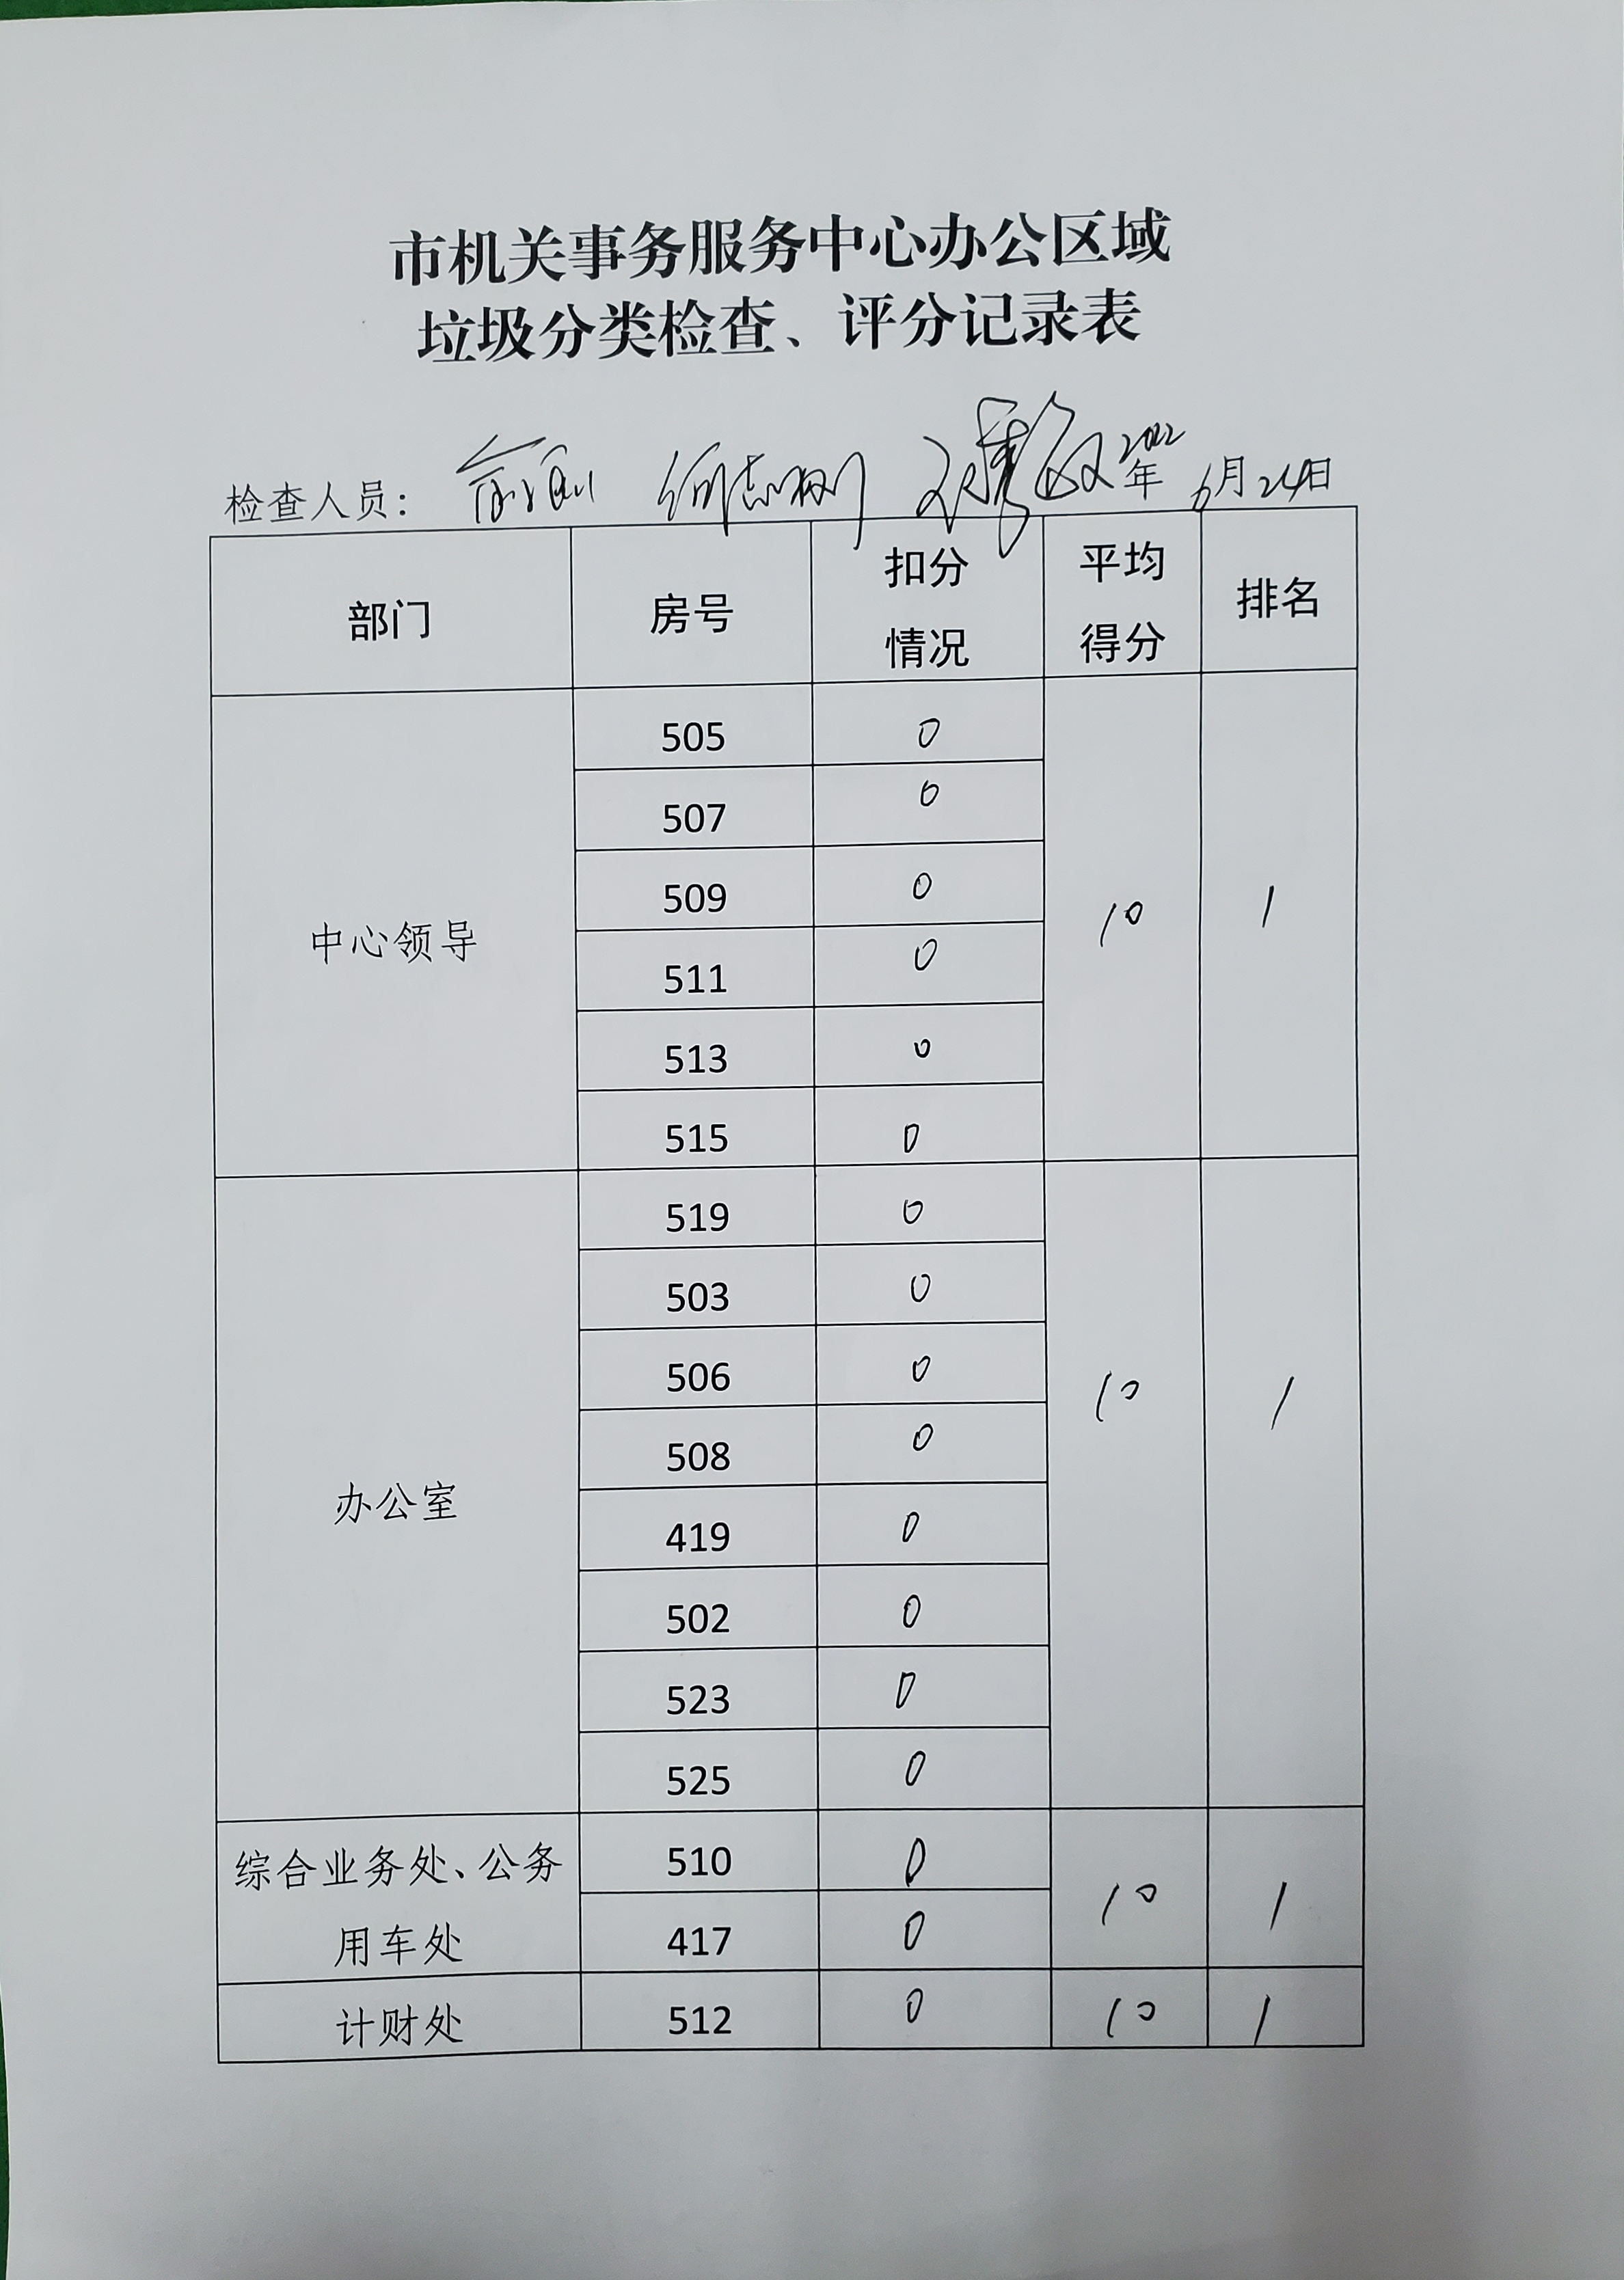 市机关事务服务中心办公区域
垃圾分类检查、评分记录表
检查人员： 2022年 6月24日
部门 房号 扣分情况 平均得分 排名
中心领导 505 0 10 1
507 0
509 0
511 0
513 0
515 0
办公室 519 0 10 1
503 0
506 0
508 0
419 0
502 0
523 0
525 0
综合业务处、公务用车处 510 0 10 1
417 0
计财处 512 0 10 1